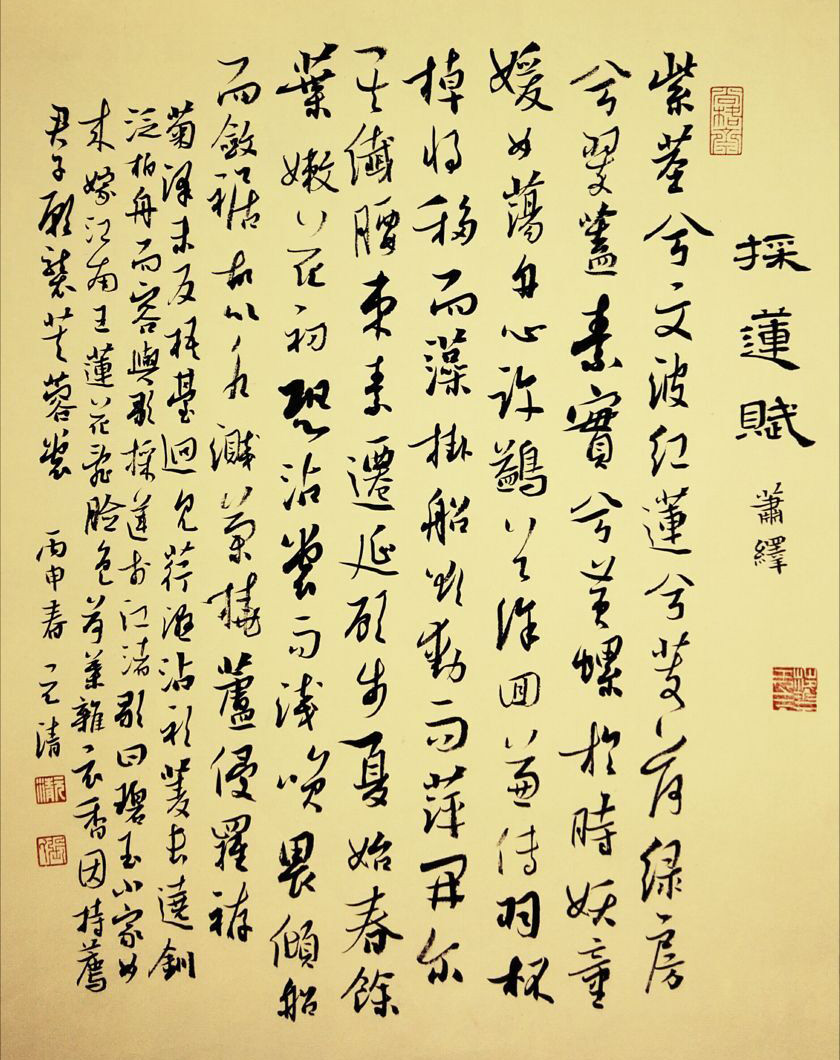 採蓮賦 蕭繹
紫莖兮文波紅蓮兮芰荷綠房
兮翠蓋素實兮黃螺於時妖童
媛女蕩舟心許鷁首徐迴兼傳羽杯
棹將移而藻掛船欲動而萍開爾
其纖腰束素遷延顧步夏始春餘
葉嫩花初恐沾裳而淺笑畏傾船
而斂裾故以水濺蘭橈蘆侵羅袸
菊澤未反梧臺迥見荇濕沾衫菱長遶釧
泛柏舟而容與歌採蓮於江渚歌曰碧玉小家女
來嫁江南王蓮花亂臉色荷葉雜衣香因持薦
君子願襲芙蓉裳 丙申春 元清